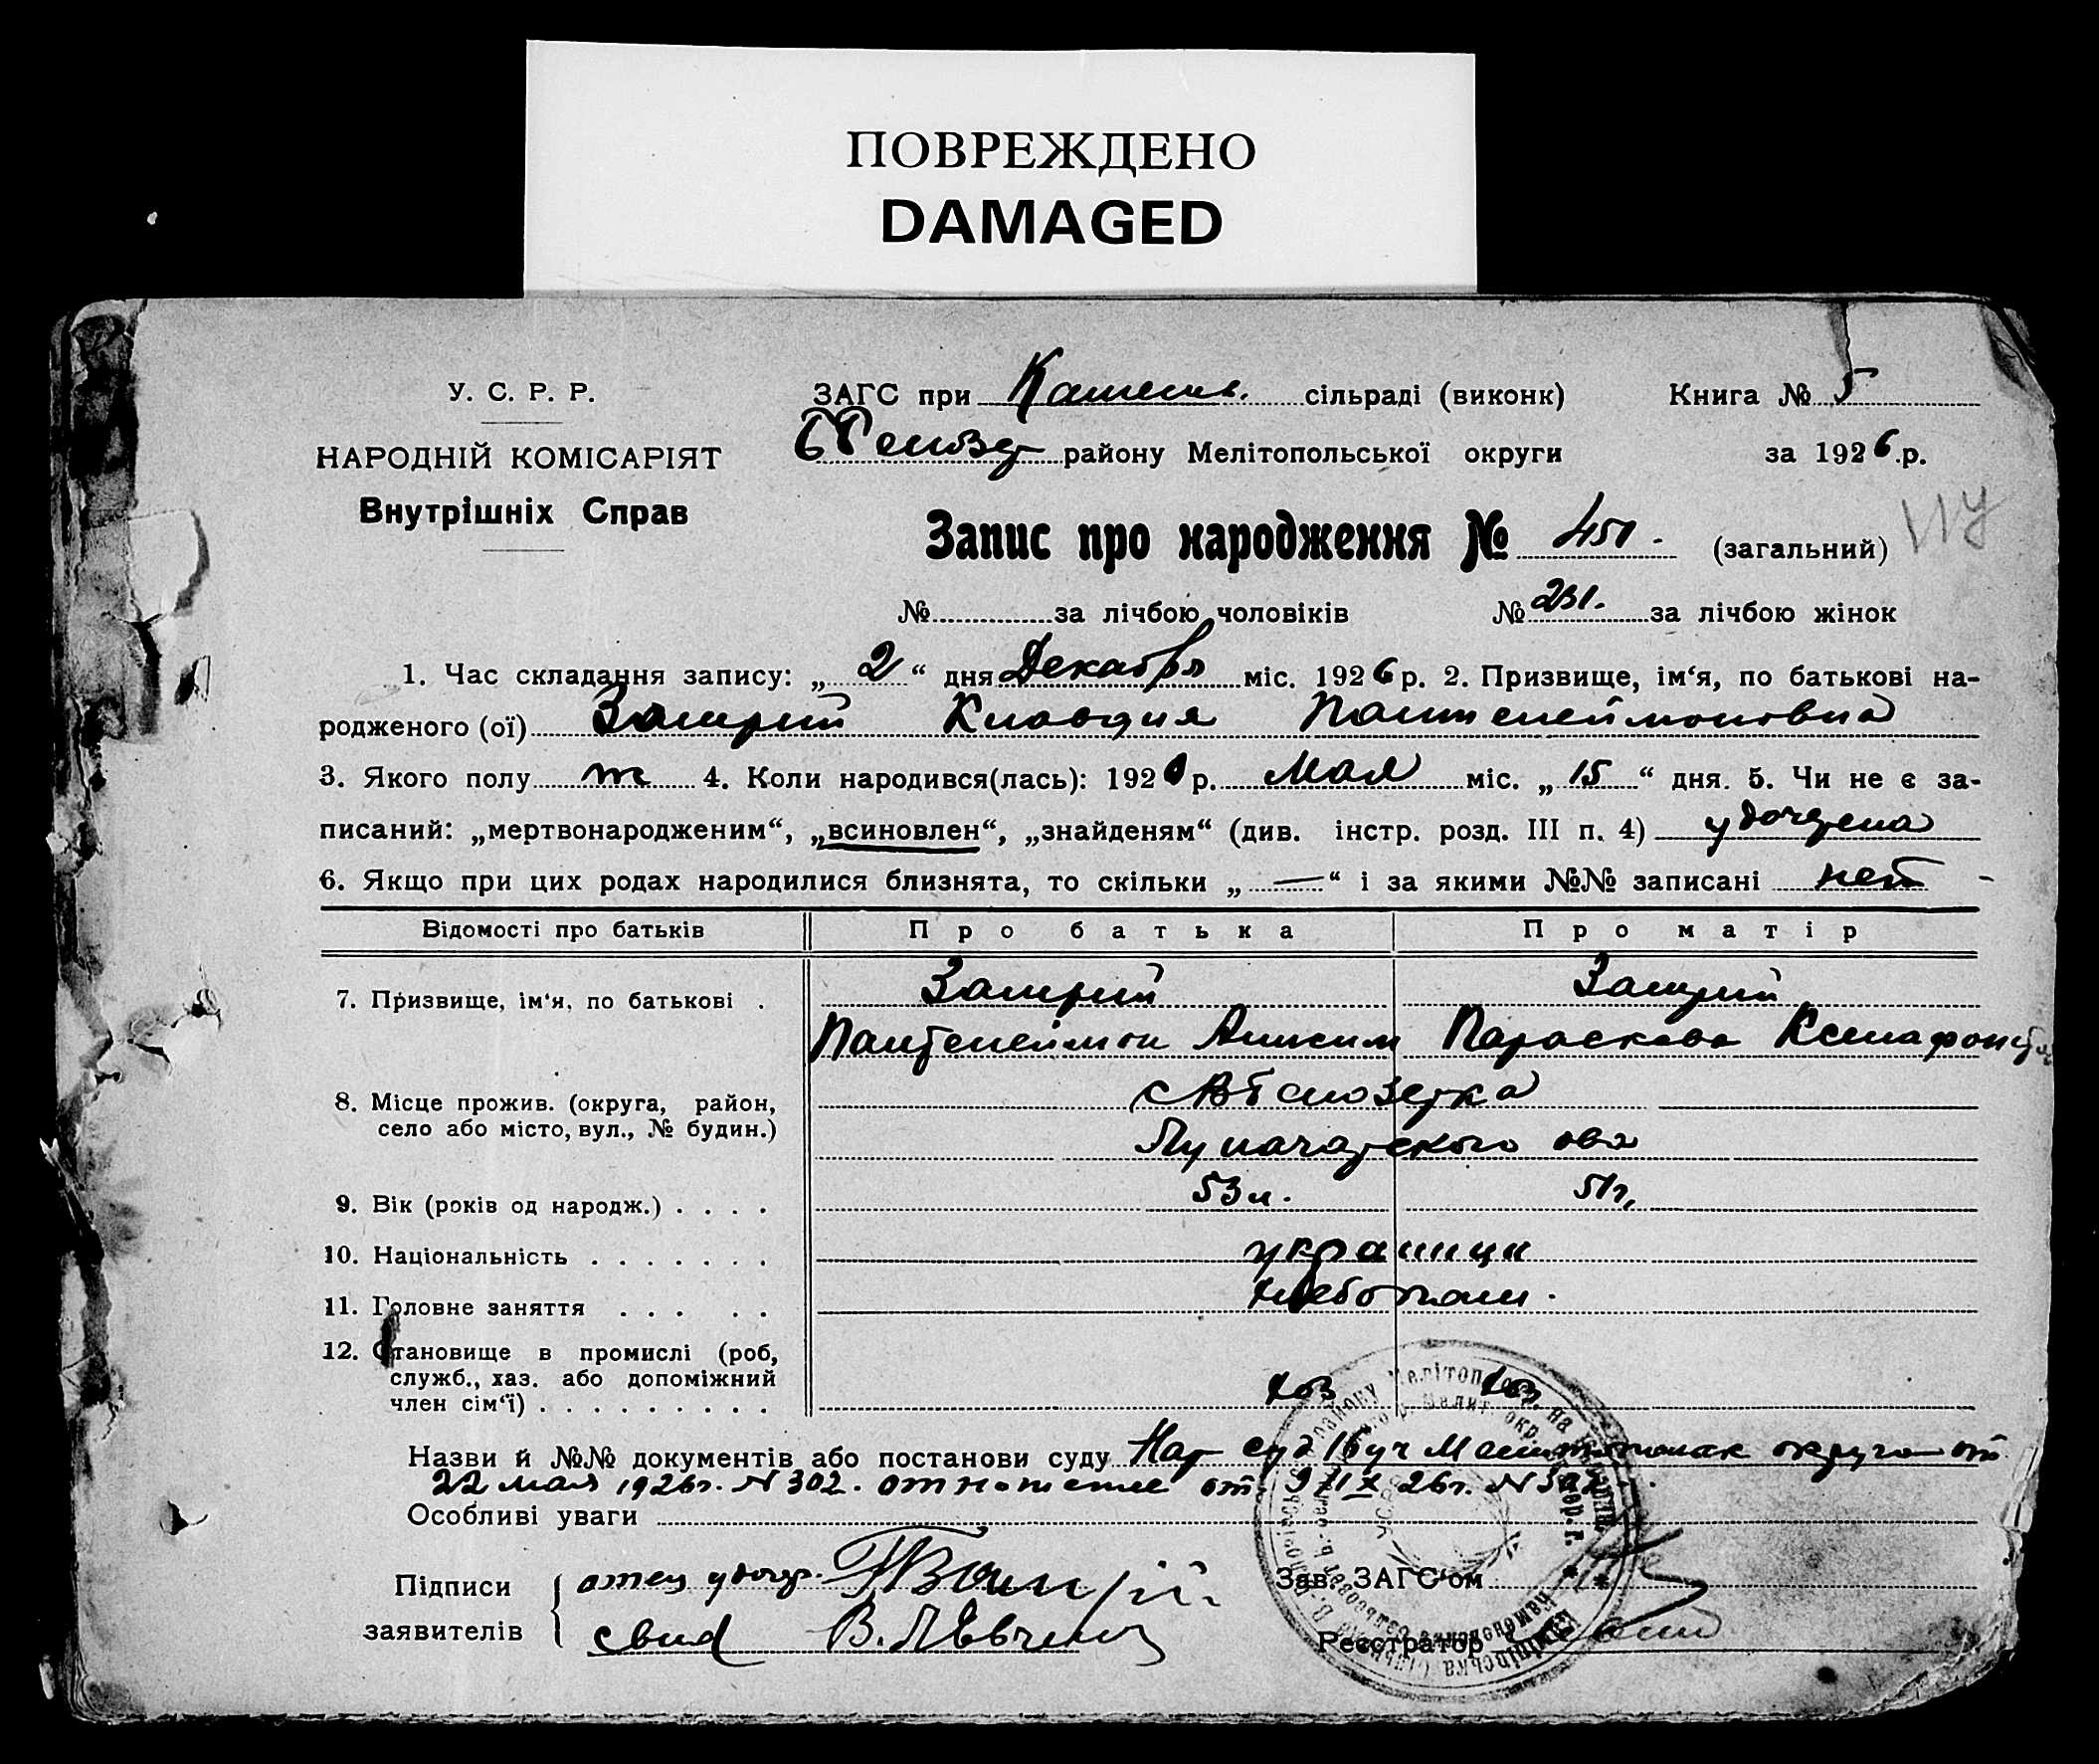 ПОВРЕЖДЕНО
DAMAGED
У. С. Р. Р.
НАРОДНІЙ КОМІСАРІЯТ
Внутрішніх Справ
ЗАГС при Каменс. сільраді (виконк)
району Мелітопольської округи
Книга № 5
за 1926 р.
Запис про народження № 451. (загальний)
№ за лічбою чоловіків № 231. за лічбою жінок
1. Час складання запису: „ 2 “ дня Декабря міс. 1926 р. 2. Призвище, ім‘я, по батькові на-
родженого (ої) Клавдия Пантелеймоновна
3. Якого полу ж 4. Коли народився(лась): 1920 р. Мая міс. „ 15 “ дня. 5. Чи не є за-
писаний: „мертвонародженим“, „всиновлен“, „знайденям“ (див. інстр. розд. III п. 4) удочерена
6. Якщо при цих родах народилися близнята, то скільки „ — “ і за якими №№ записані нет
Відомості про батьків Про батька Про матір
7. Призвище, ім‘я, по батькові .
Пантелеймон Анисим Параскева
8. Місце прожив. (округа, район,
село або місто, вул., № будин.)
9. Вік (років од народж.) . . . . 53 л. 51 г.
10. Національність . . . . . . . украинцы
11. Головне заняття . . . . . хлебопаш.
12. Становище в промислі (роб,
служб., хаз. або допоміжний
член сім‘ї) . . . . . . . . . хоз хоз.
Назви й №№ документів або постанови суду Нар суд 16 уч округа от
22 мая 1926г. N 302. отношение от 26г. N
Особливі уваги
Підписи
заявителів
отец удочер.
свид В. Лев
Зав. ЗАГС‘ом
Реєстратор